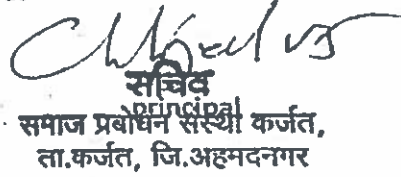 सचिव
principal
समाज प्रबोधन संस्था कर्जत,
ता.कर्जत, जि.अहमदनगर